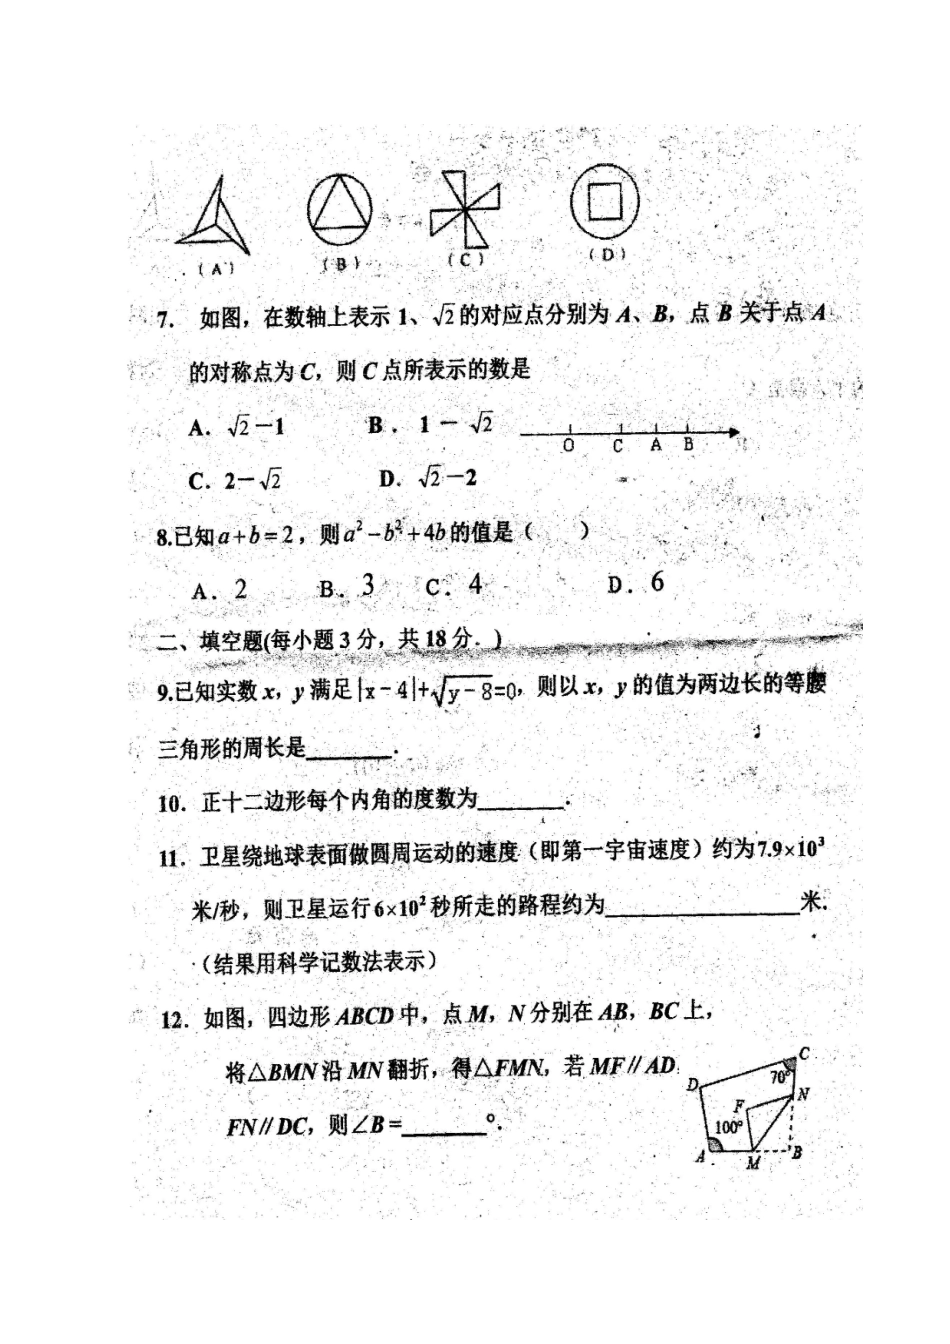 (A) (B) (C) (D)
7. 如图，在数轴上表示 1、√2 的对应点分别为 A、B，点 B 关于点 A
的对称点为 C，则 C 点所表示的数是
A. √2－1 B. 1－√2
O C A B
C. 2－√2 D. √2－2
8.已知 a+b=2，则 a²－b²+4b 的值是（ ）
A. 2 B. 3 C. 4 D. 6
二、填空题(每小题 3 分，共 18 分．)
9.已知实数 x，y 满足 |x－4|+√y－8=0，则以 x，y 的值为两边长的等腰
三角形的周长是________.
10. 正十二边形每个内角的度数为________.
11. 卫星绕地球表面做圆周运动的速度（即第一宇宙速度）约为7.9×10³
米/秒，则卫星运行6×10²秒所走的路程约为________________米.
（结果用科学记数法表示）
12. 如图，四边形 ABCD 中，点 M，N 分别在 AB，BC 上，
将△BMN 沿 MN 翻折，得△FMN，若 MF∥AD
FN∥DC，则∠B=________°.
C
D 70°
N
F
100°
A M B